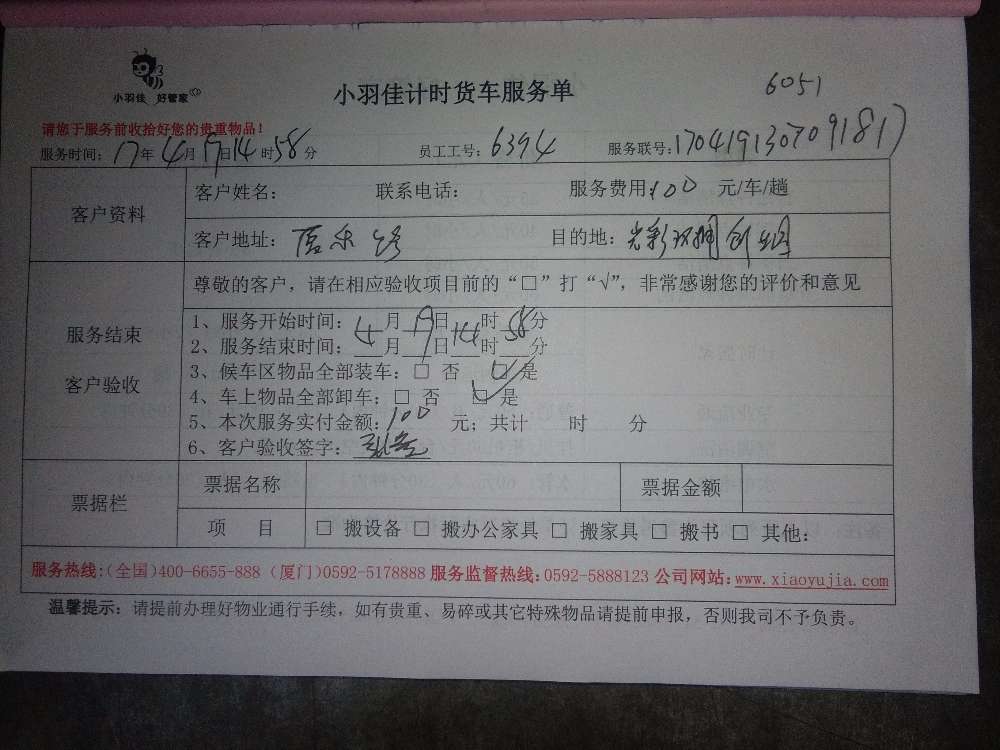 小羽佳 好管家
小羽佳计时货车服务单
6051
请您于服务前收拾好您的贵重物品！
服务时间：17年4月19日14时58分 员工工号：6394 服务联号：1704191307091817
客户资料
客户姓名： 联系电话： 服务费用：100 元/车/趟
客户地址： 目的地：
服务结束
客户验收
尊敬的客户，请在相应验收项目前的“□”打“√”，非常感谢您的评价和意见
1、服务开始时间：4月19日14时58分
2、服务结束时间：___月___日___时___分
3、候车区物品全部装车：□ 否 □ 是
4、车上物品全部卸车：□ 否 □ 是
5、本次服务实付金额：100 元；共计 时 分
6、客户验收签字：
票据栏
票据名称 票据金额
项 目 □ 搬设备 □ 搬办公家具 □ 搬家具 □ 搬书 □ 其他：
服务热线：(全国)400-6655-888 (厦门)0592-5178888 服务监督热线：0592-5888123 公司网站：www.xiaoyujia.com
温馨提示：请提前办理好物业通行手续，如有贵重、易碎或其它特殊物品请提前申报，否则我司不予负责。